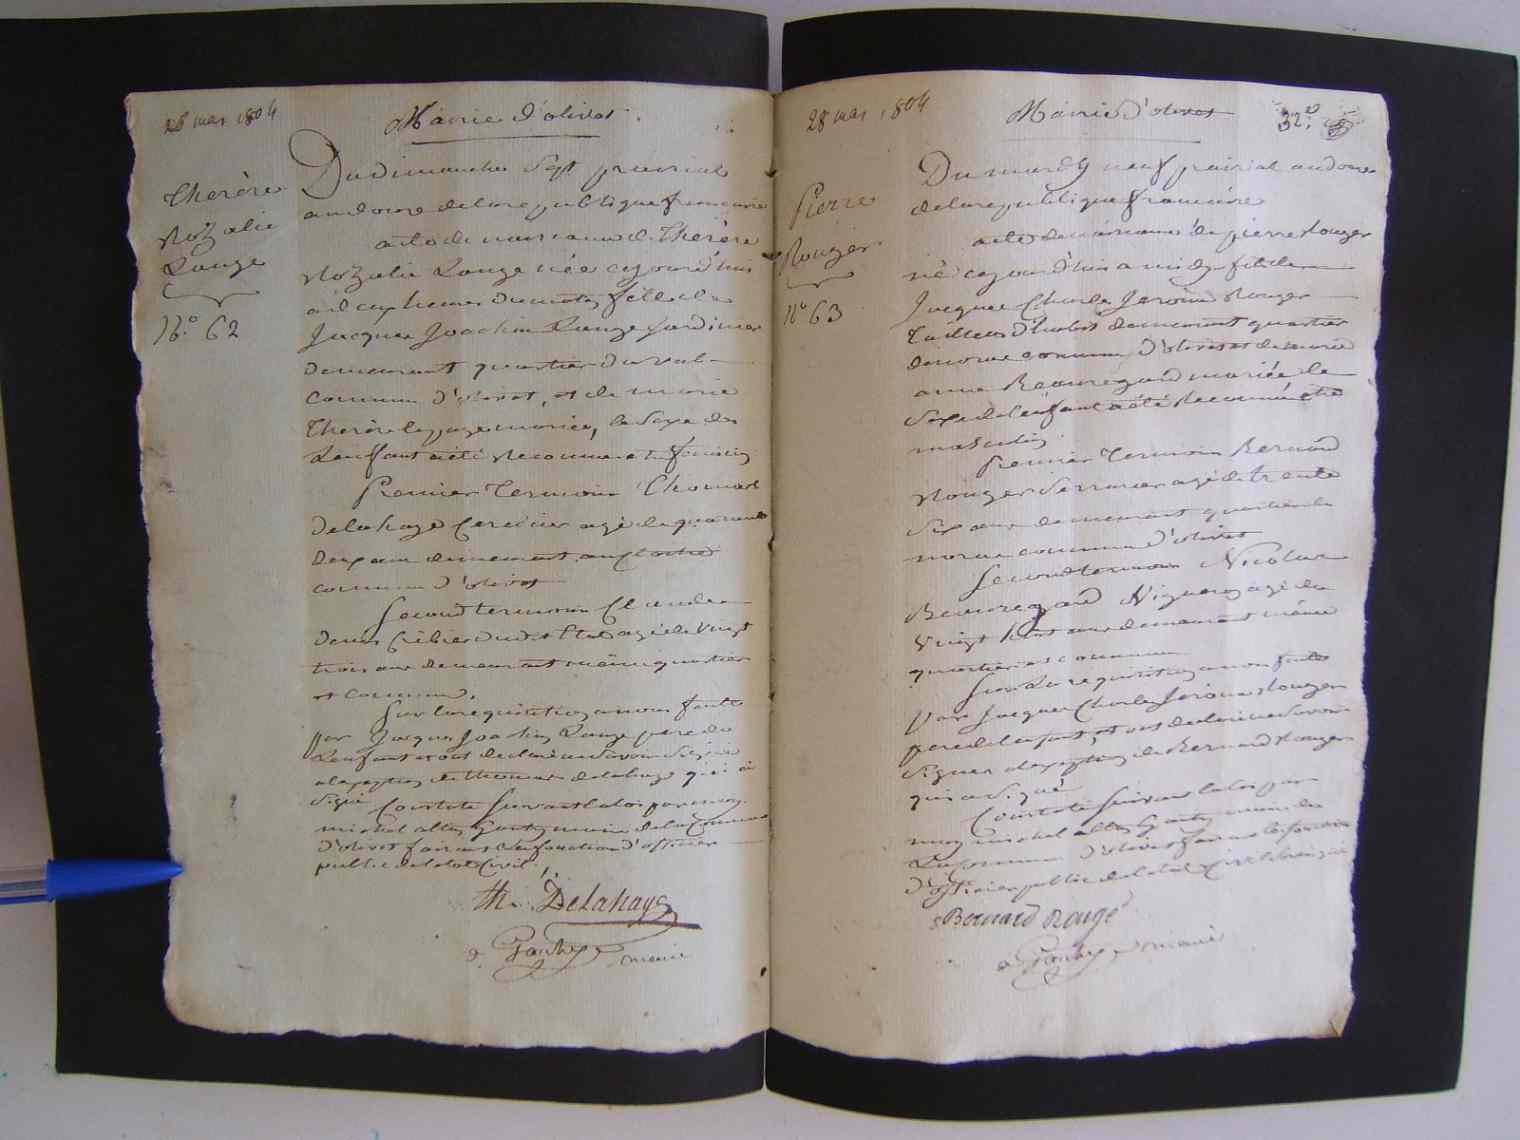 28 mai 1804
Mairie d'olivet
Therère
Rozalie
Rouge
N.o 62
Du dimanche Sept prairial
an douze de la republique francaise
acte de naissance de Therère
Rozalie Rouge née cejourd'hui
heures du matin fille de
Jacque Joachin Rouge Jardinier
demeurant quartier du val
commune d'olivet, et de marie
Therère lepage mariée, le Sexe de
Lenffant a été Reconnu etre feminin
Premier Termoin Thomas
Delahaye Cercier agé de quarante
deux ans demeurant au Cloitre
commune d'olivet
Second termoin Claude
denis agé de Vingt
trois ans demeurant même quartier
et commune.
Sur la requisition a nous faitte
par Jacque Joachin Rouge pere de
Lenffant et ont declaré ne Savoir Signer
a lexception de thomas delahaye qui a
Signé Constaté Suivant la loi par moy
michel alten Gauthy maire de la Commune
d'olivet faisant les fonction d'officier
public de letat Civil.
th. Delahaye
Gauthy maire
28 mai 1804
Mairie d'olivet
32.
Pierre
Rouger
N.o 63
Du mardy neuf prairial an douze
de la republique francaise
acte de naissance de pierre Rouger
né cejourd'hui a midy fils de
Jacque Charle Jerome Rouger
Tailleur d'habit demeurant quartier
de commune d'olivet et de marie
anne Beauregard mariée le
Sexe de lenfant a été Reconnu etre
masculin
Premier Termoin Bernard
Rouger Serrurier agé de trente
Six ans demeurant quartier de
commune d'olivet
Second termoin Nicolas
Beauregard Vigneron agé de
Vingt huit ans demeurant même
quartier et commune
Sur la requisition a nous faitte
par Jacque Charle Jerome Rouger
pere de lenfant, et ont declaré ne Savoir
Signer a lexception de Bernard Rouger
qui a Signé
Constaté Suivant la loi par
moy michel alten Gauthy maire de
La commune d'olivet faisant les fonction
d'officier public de letat Civil Soussigné
Bernard Rougé
Gauthy maire